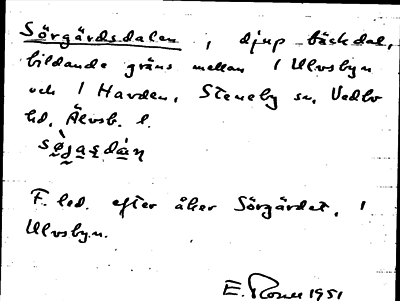 Sörgärdsdalen, djup bäckdal,
bildande gräns mellan 1 Ulvsbyn
och 1 Harden, Steneby sn, Vedbo
hd, Älvsb. l.
F. led. efter åker Sörgärdet, 1
Ulvsbyn.
E. Rosell 1951